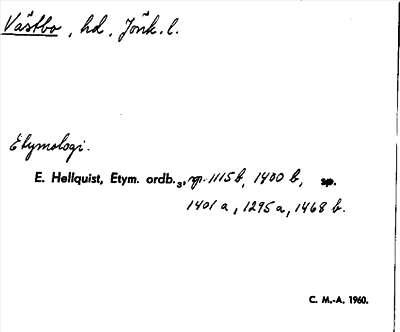 Västbo, hd, Jönk. l.
Etymologi.
E. Hellquist, Etym. ordb.₃, sp. 1115 b, 1400 b, sp.
1401 a, 1295 a, 1468 b.
C. M.-A. 1960.